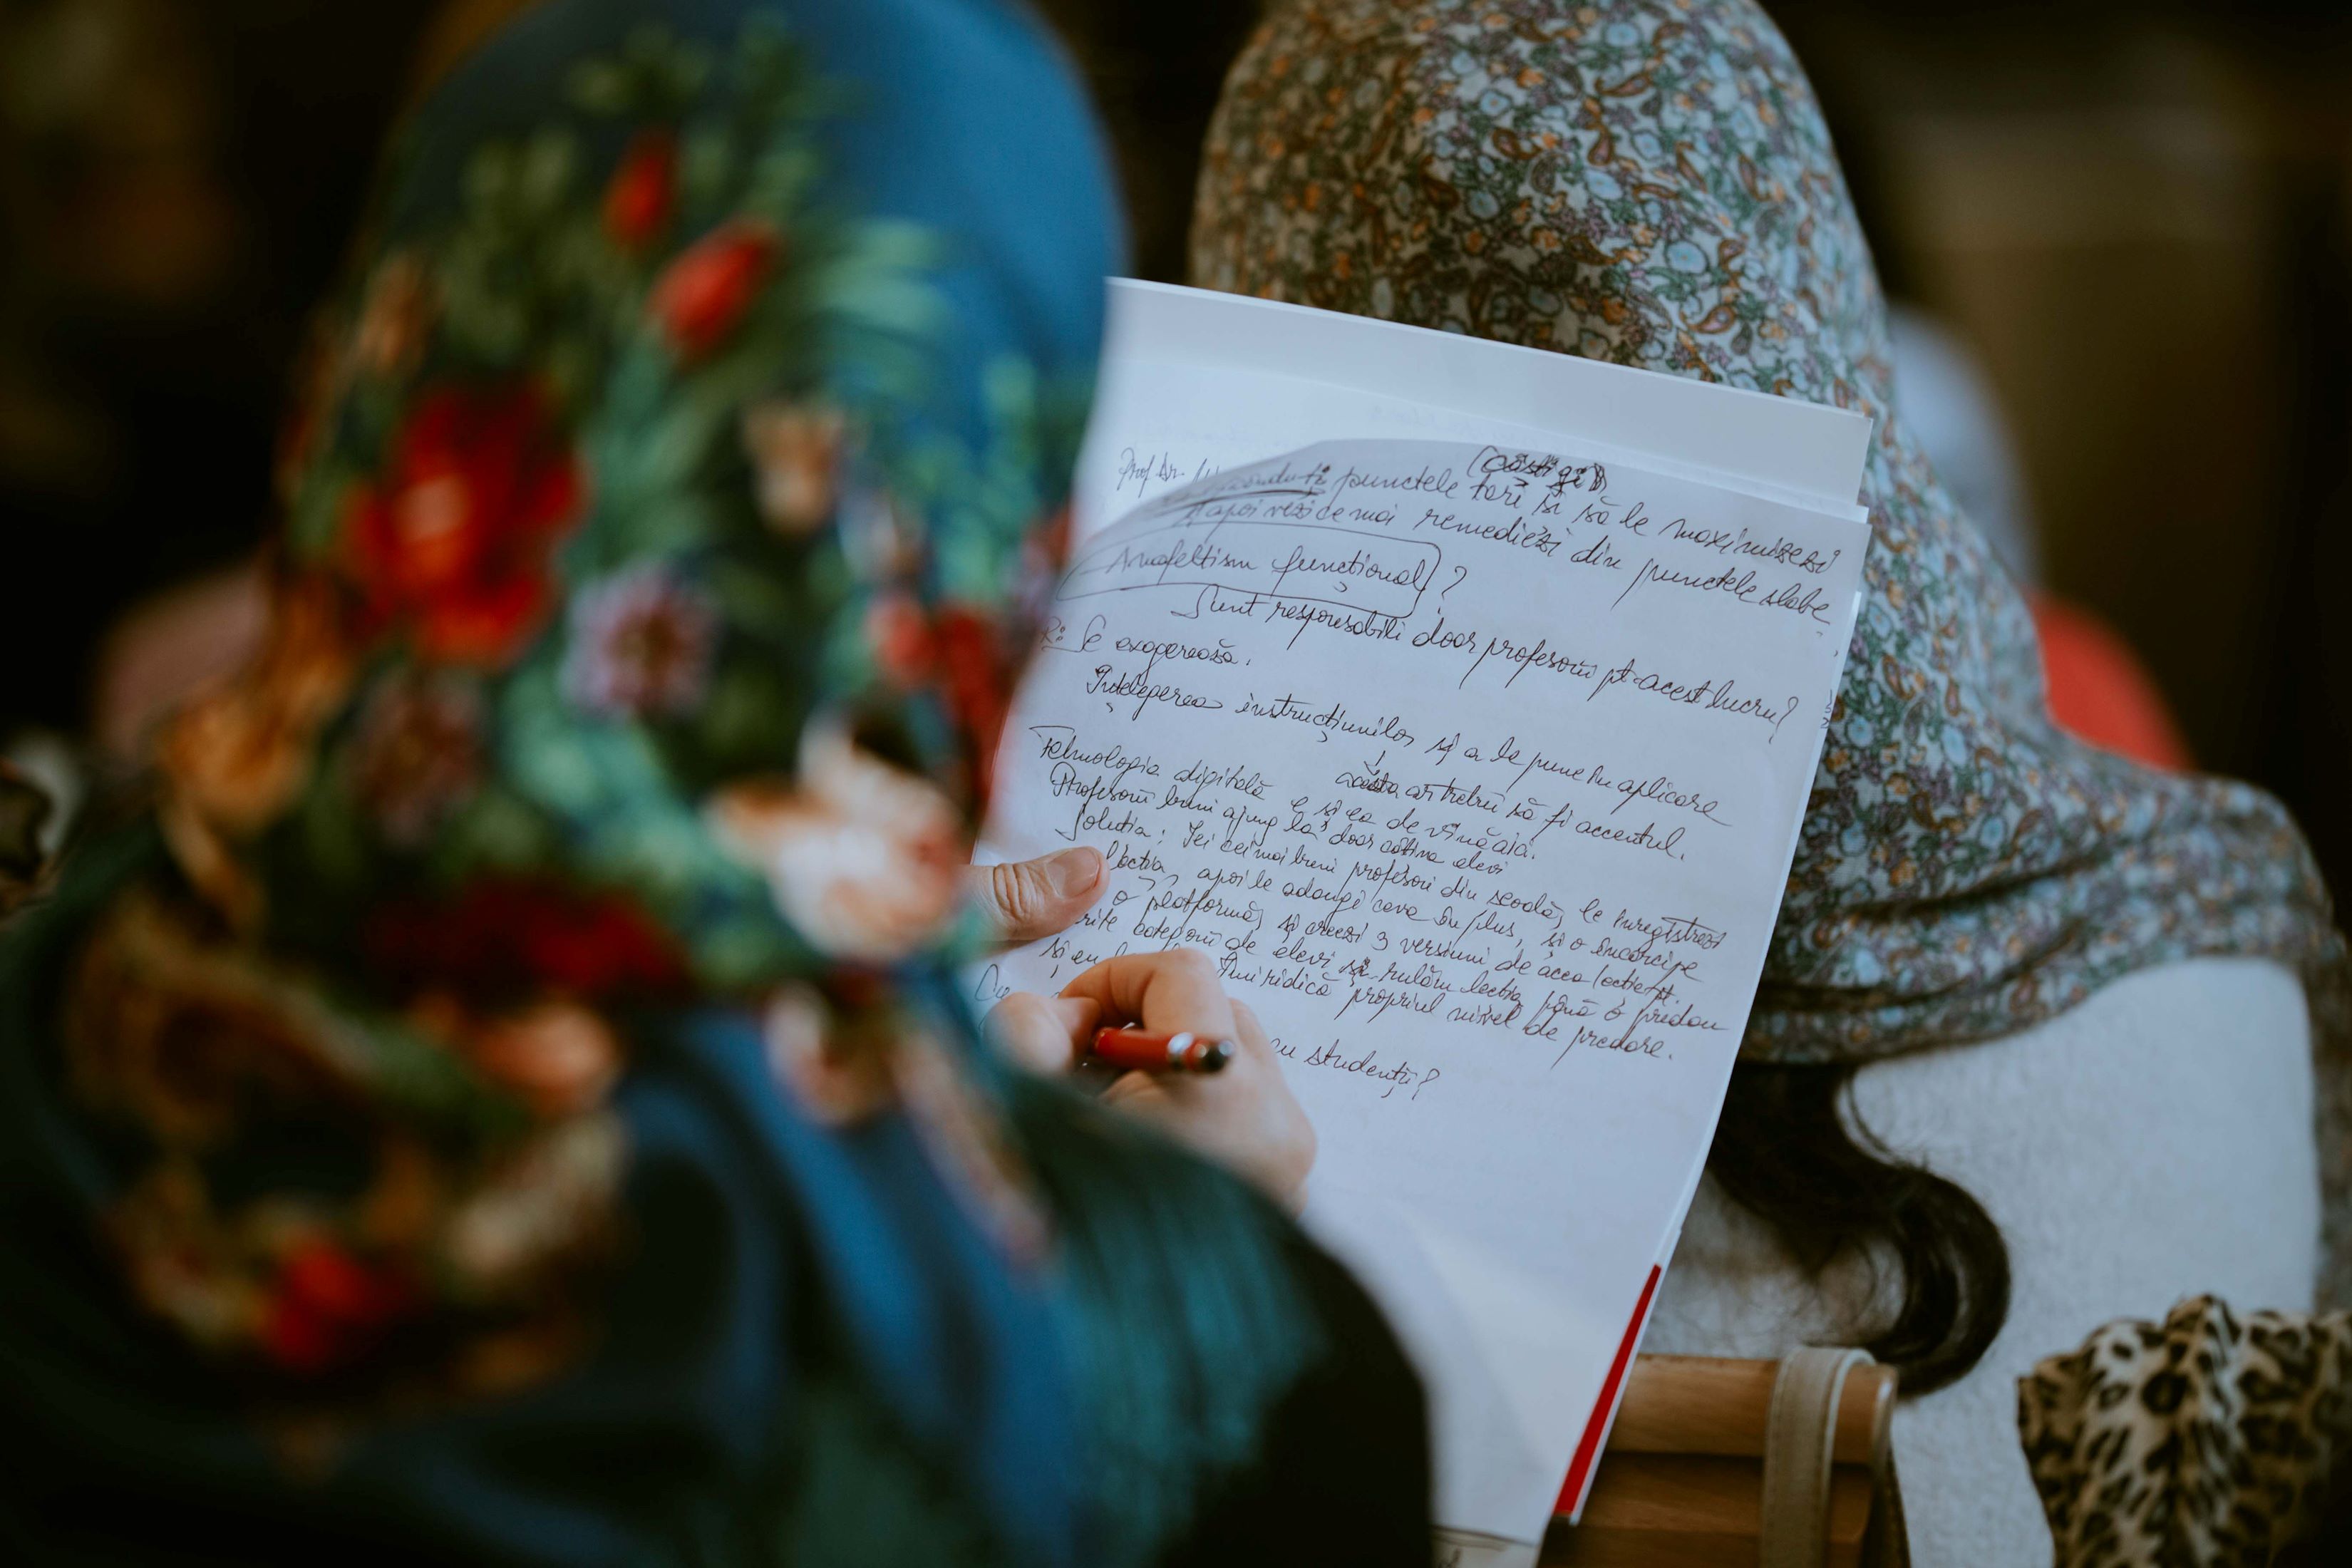 Prof. dr.
(câștigi)
punctele tari și să le maximizezi
apoi vezi ce mai remediezi din punctele slabe.
Analfeltism funcțional ?
Sunt responsabili doar profesorii pt. acest lucru?
R: Se exagerează.
Înțelegerea instrucțiunilor și a le pune în aplicare
ăsta ar trebui să fi accentul.
Tehnologia digitală e și ea de vină aici.
Profesorii buni ajung la doar câtiva elevi
Soluția: Iei cei mai buni profesori din școală, le înregistrezi
lecția, apoi le adaugi ceva în plus, și o încarci pe
o platformă, și creezi 3 versiuni de acea lecție pt.
categorii de elevi să rulăm lecția până o predau
și îmi ridică propriul nivel de predare.
cu studenții?